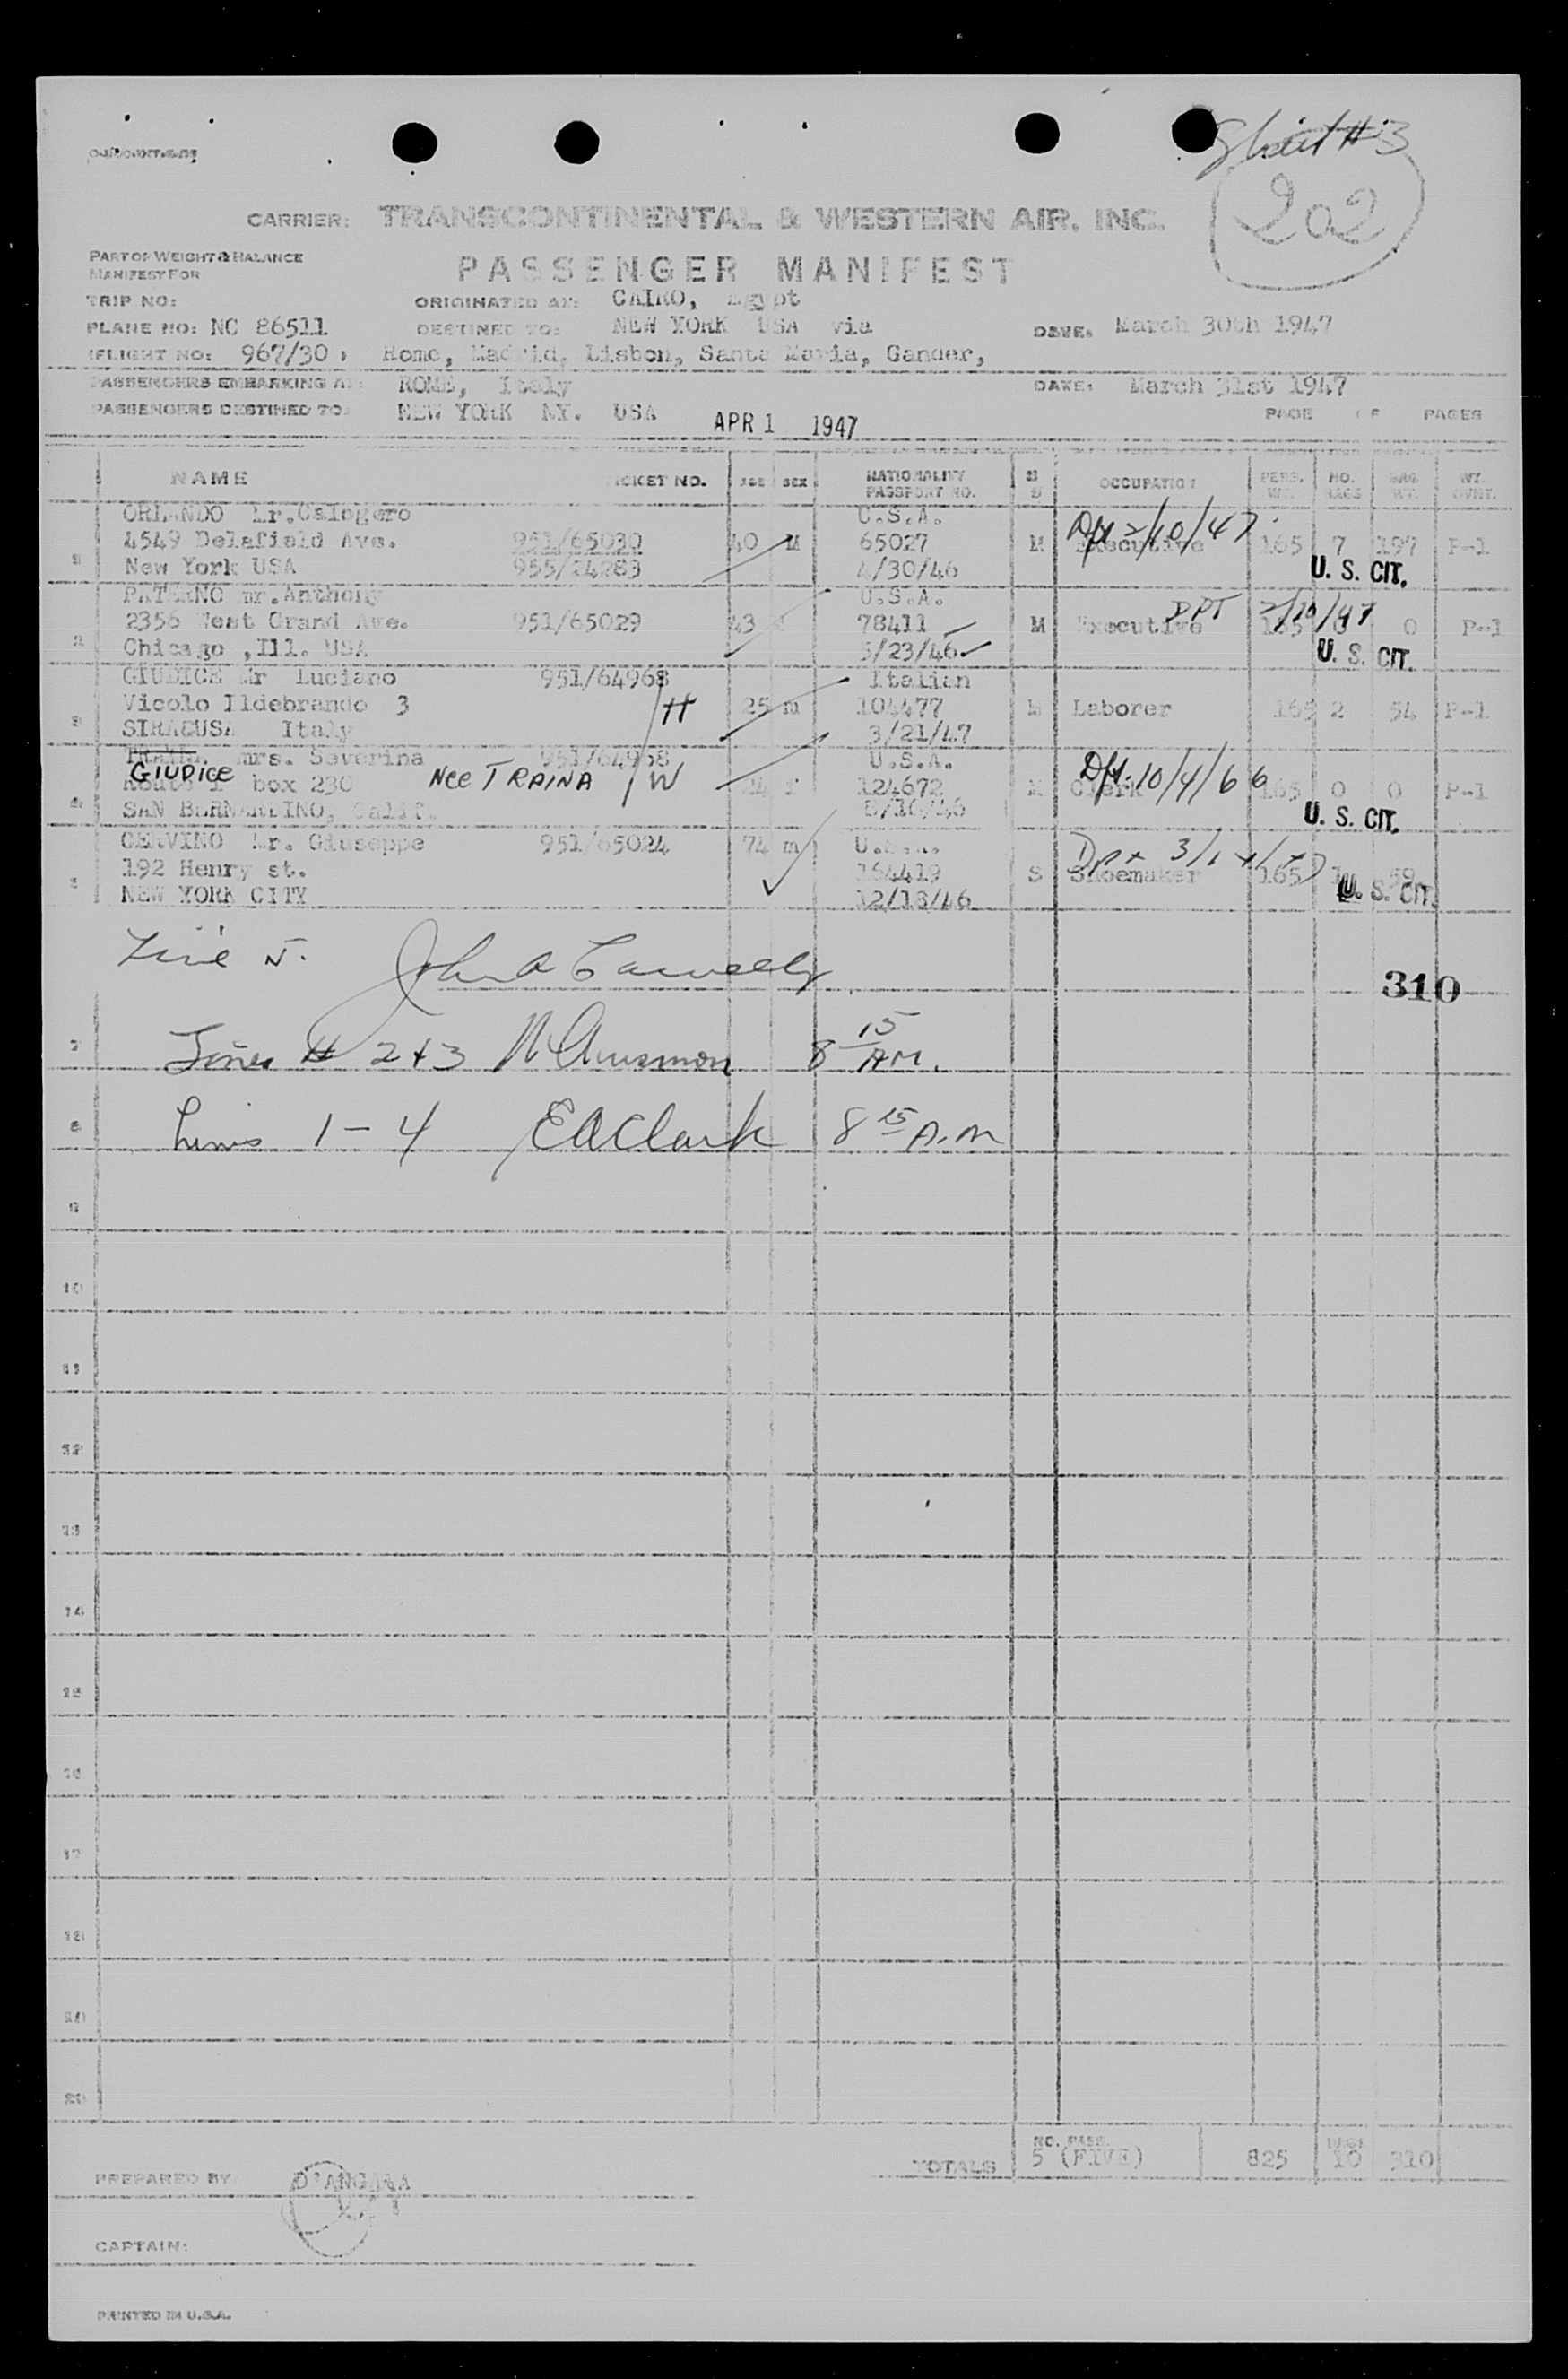 Sheet #3
202
CARRIER: TRANSCONTINENTAL & WESTERN AIR, INC.
PART OF WEIGHT & BALANCE
MANIFEST FOR
PASSENGER MANIFEST
TRIP NO: ORIGINATED AT: CAIRO, Egypt
PLANE NO: NC 86511 DESTINED TO: NEW YORK USA via DATE: March 30th 1947
FLIGHT NO: 967/30 Rome, Madrid, Lisbon, Santa Maria, Gander,
PASSENGERS EMBARKING AT: ROME, Italy DATE: March 31st 1947
PASSENGERS DESTINED TO: NEW YORK NY. USA APR 1 1947 PAGE OF PAGES
NAME TICKET NO. AGE SEX NATIONALITY PASSPORT NO. OCCUPATION PERS. WT. NO. BAGS BAG WT. WT. OVHT.
ORLANDO Mr.Calogero U.S.A.
4549 Delafield Ave. 951/65030 40 M 65027 M Executive 2/10/47 165 7 197 P-1
New York USA 955/24283 4/30/46 U. S. CIT.
PATERNO mr.Anthony U.S.A.
2356 West Grand Ave. 951/65029 43 78411 M Executive DPT 2/10/47 165 0 0 P-1
Chicago ,Ill. USA 5/23/46 U. S. CIT.
GIUDICE Mr Luciano 951/64968 Italian
Vicolo Ildebrando 3 /H 25 m 104477 M Laborer 165 2 54 P-1
SIRACUSA Italy 3/21/47
TRAINA mrs. Severina 951/64968 U.S.A.
GIUDICE Route 1 box 230 Nee TRAINA /W 24 f 124672 M Clerk 10/4/66 165 0 0 P-1
SAN BERNARDINO, Calif. 8/16/46 U. S. CIT.
CERVINO Mr. Giuseppe 951/65024 74 m U.S.A.
192 Henry st. 164419 S Shoemaker 165 1 59
NEW YORK CITY 12/18/46 U. S. CIT.
Line 5.
310
7 Lines # 2+3 8 15 AM.
8 Lines 1-4 EA Clark 8 15 A.M
9
10
11
12
13
14
15
16
17
18
19
20
TOTALS NO. PASS. 5 (FIVE) 825 10 310
PREPARED BY:
CAPTAIN:
PRINTED IN U.S.A.